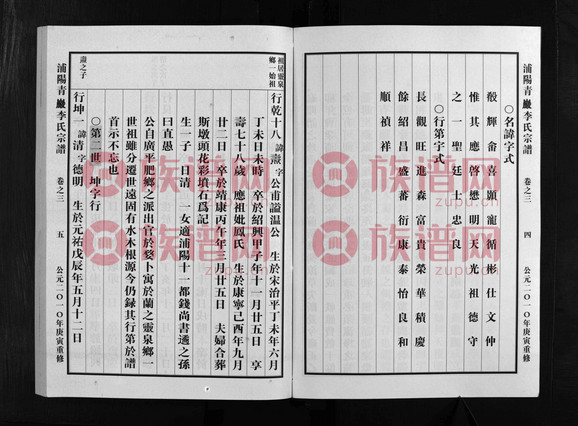 浦陽青巖李氏宗譜 卷之三 四 公元二〇一〇年庚寅重修
〇名諱字式
毅輝畬喜顯寵循彬仕文仲
惟其應啓懋明天光祖德守
之一聖廷士忠良
〇行第字式
長觀旺進森富貴榮華積慶
餘紹昌盛蕃衍康泰怡良和
順禎祥
祖居靈泉
鄉一始祖
行乾十八 諱燾 字公甫謚溫公 生於宋治平丁未年六月
丁未日未時 卒於紹興甲子年十一月廿五日 享
壽七十八歲 應祖妣鳳氏 生於康寧己酉年九月
廿二日 卒於靖康丙午年三月廿五日 夫婦合葬
斯墩頭花彩墳石爲記
生一子 日清 一女適浦陽十一都錢尚書遹之孫
曰直愚
公自廣平肥鄉之派出官於婺卜寓於蘭之靈泉鄉一
世祖雖分遷世遠固有水木根源今仍録其行第於譜
首示不忘也
〇第二世 坤字行
燾之子
行坤一 諱清 字德明 生於元祐戊辰年五月十二日
浦陽青巖李氏宗譜 卷之三 五 公元二〇一〇年庚寅重修
族谱网
zupu.cn
族谱网
zupu.cn
族谱网
zupu.cn
族谱网
zupu.cn